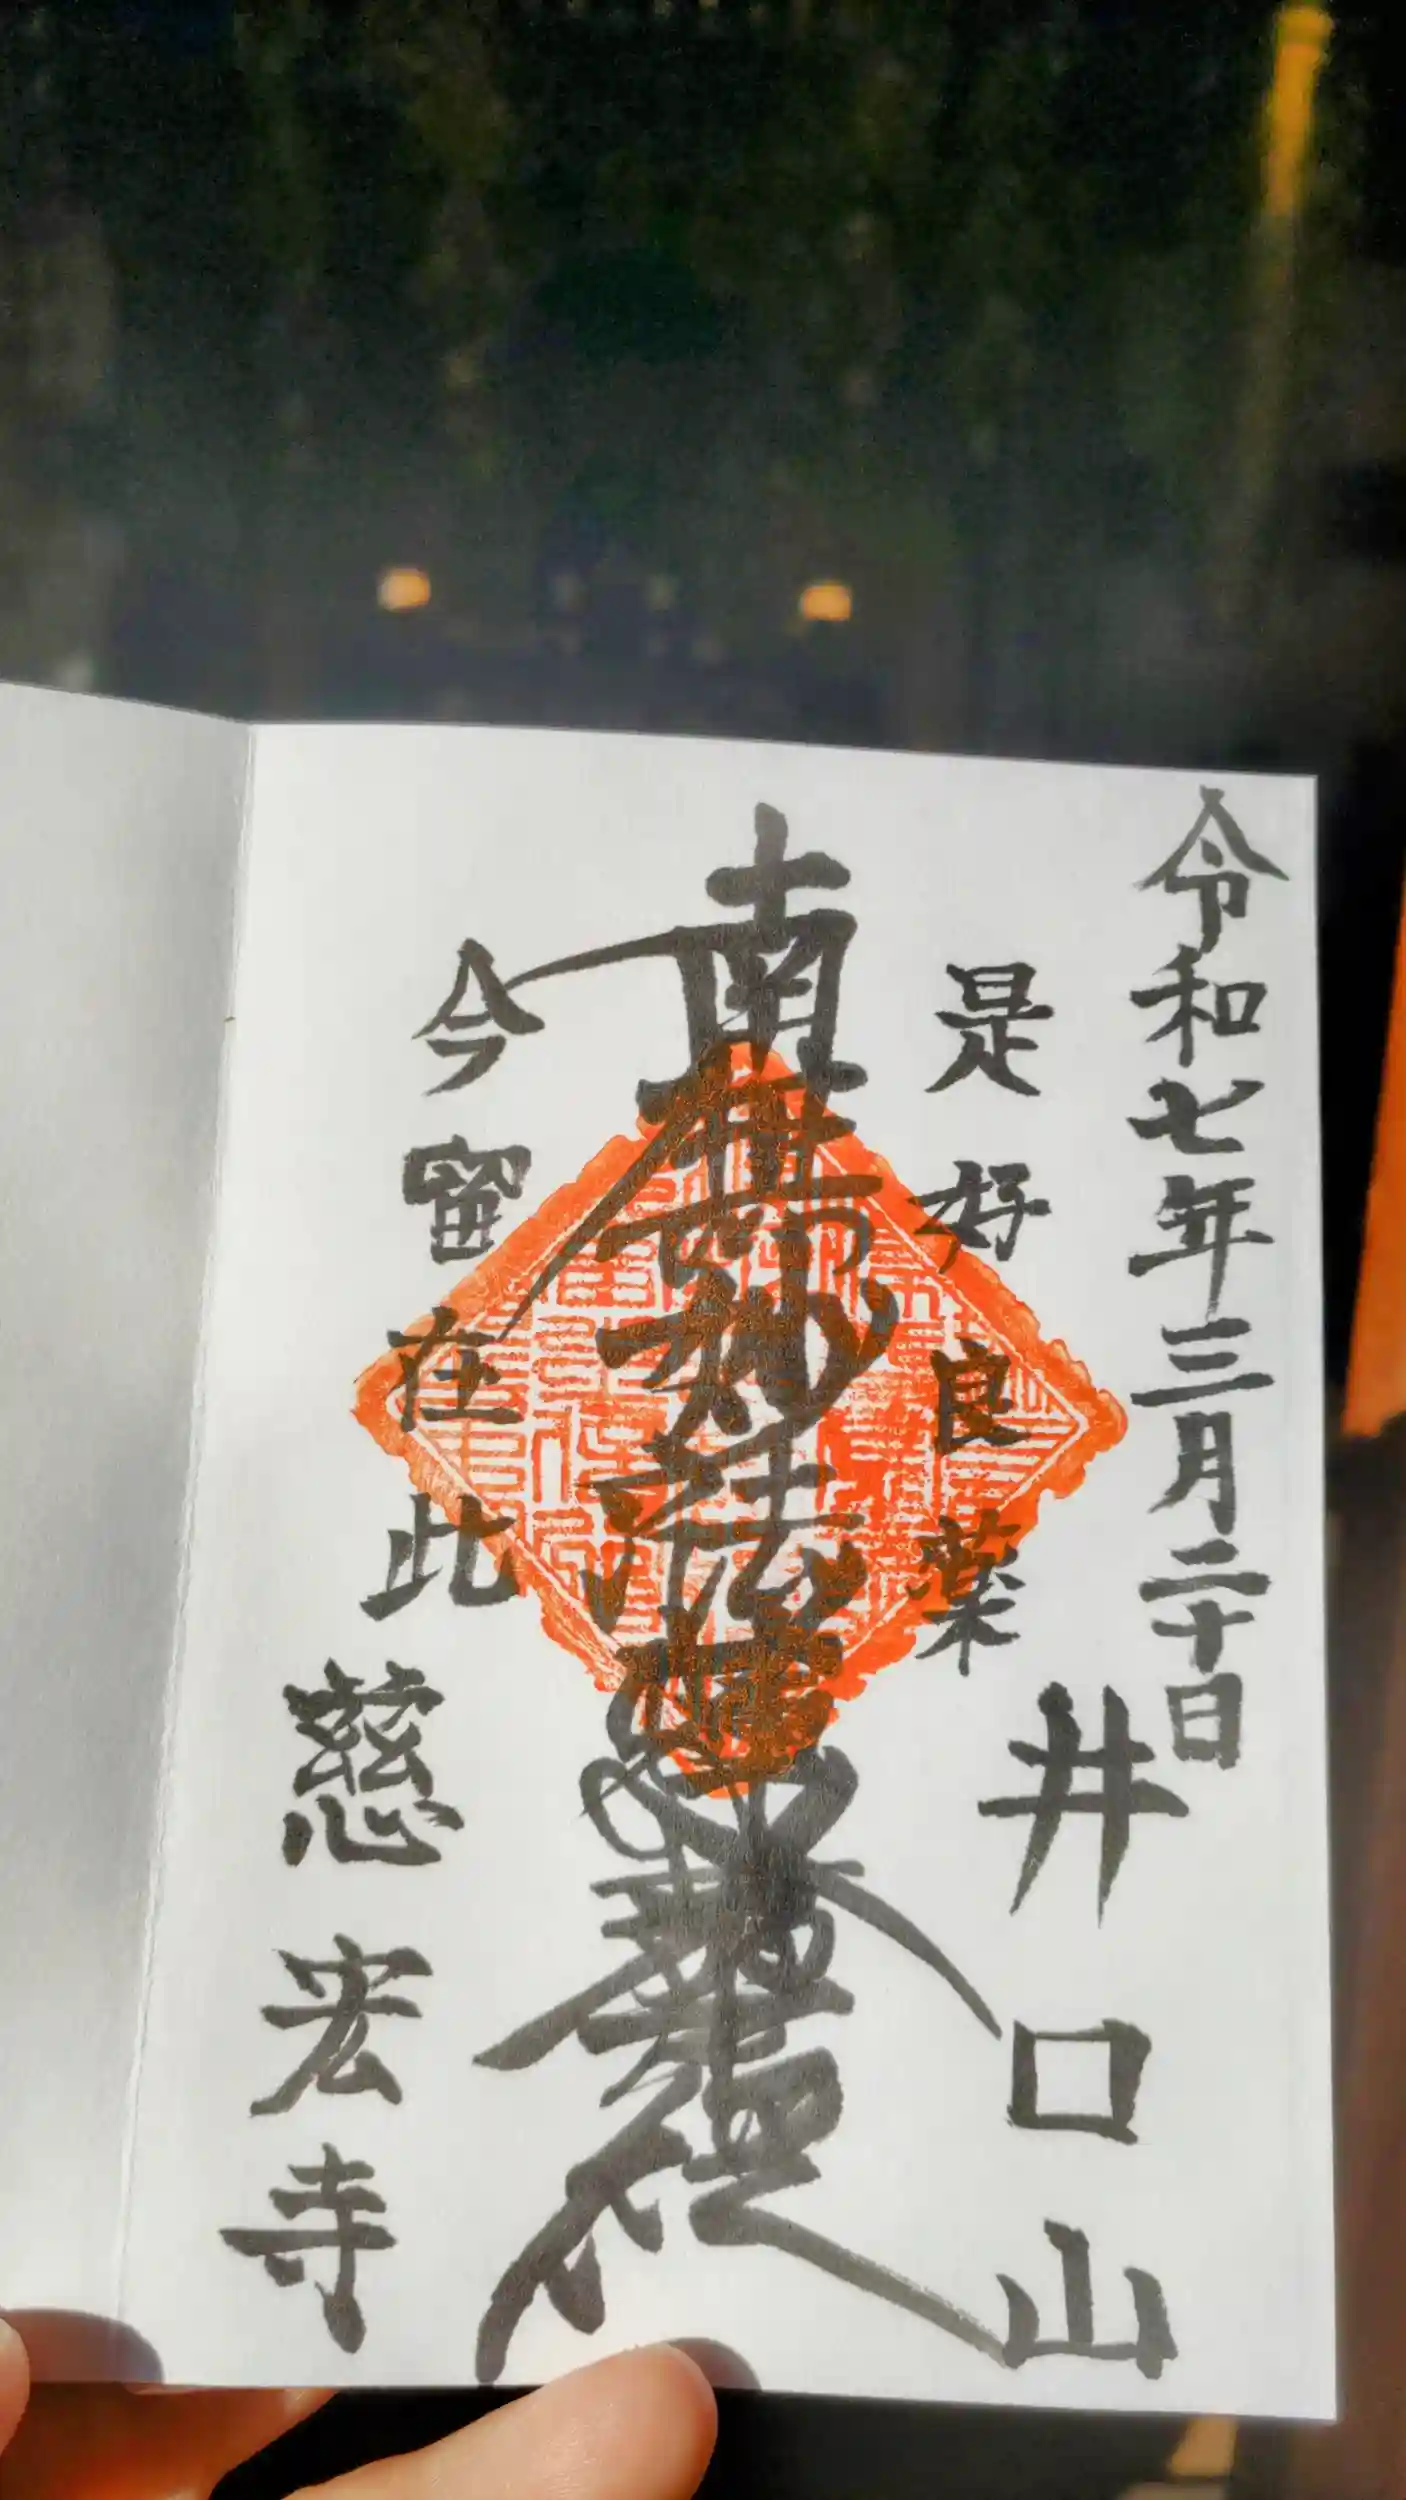 令和七年三月二十日
井口山
是好良薬
南無妙法蓮華経
今留在此
慈宏寺